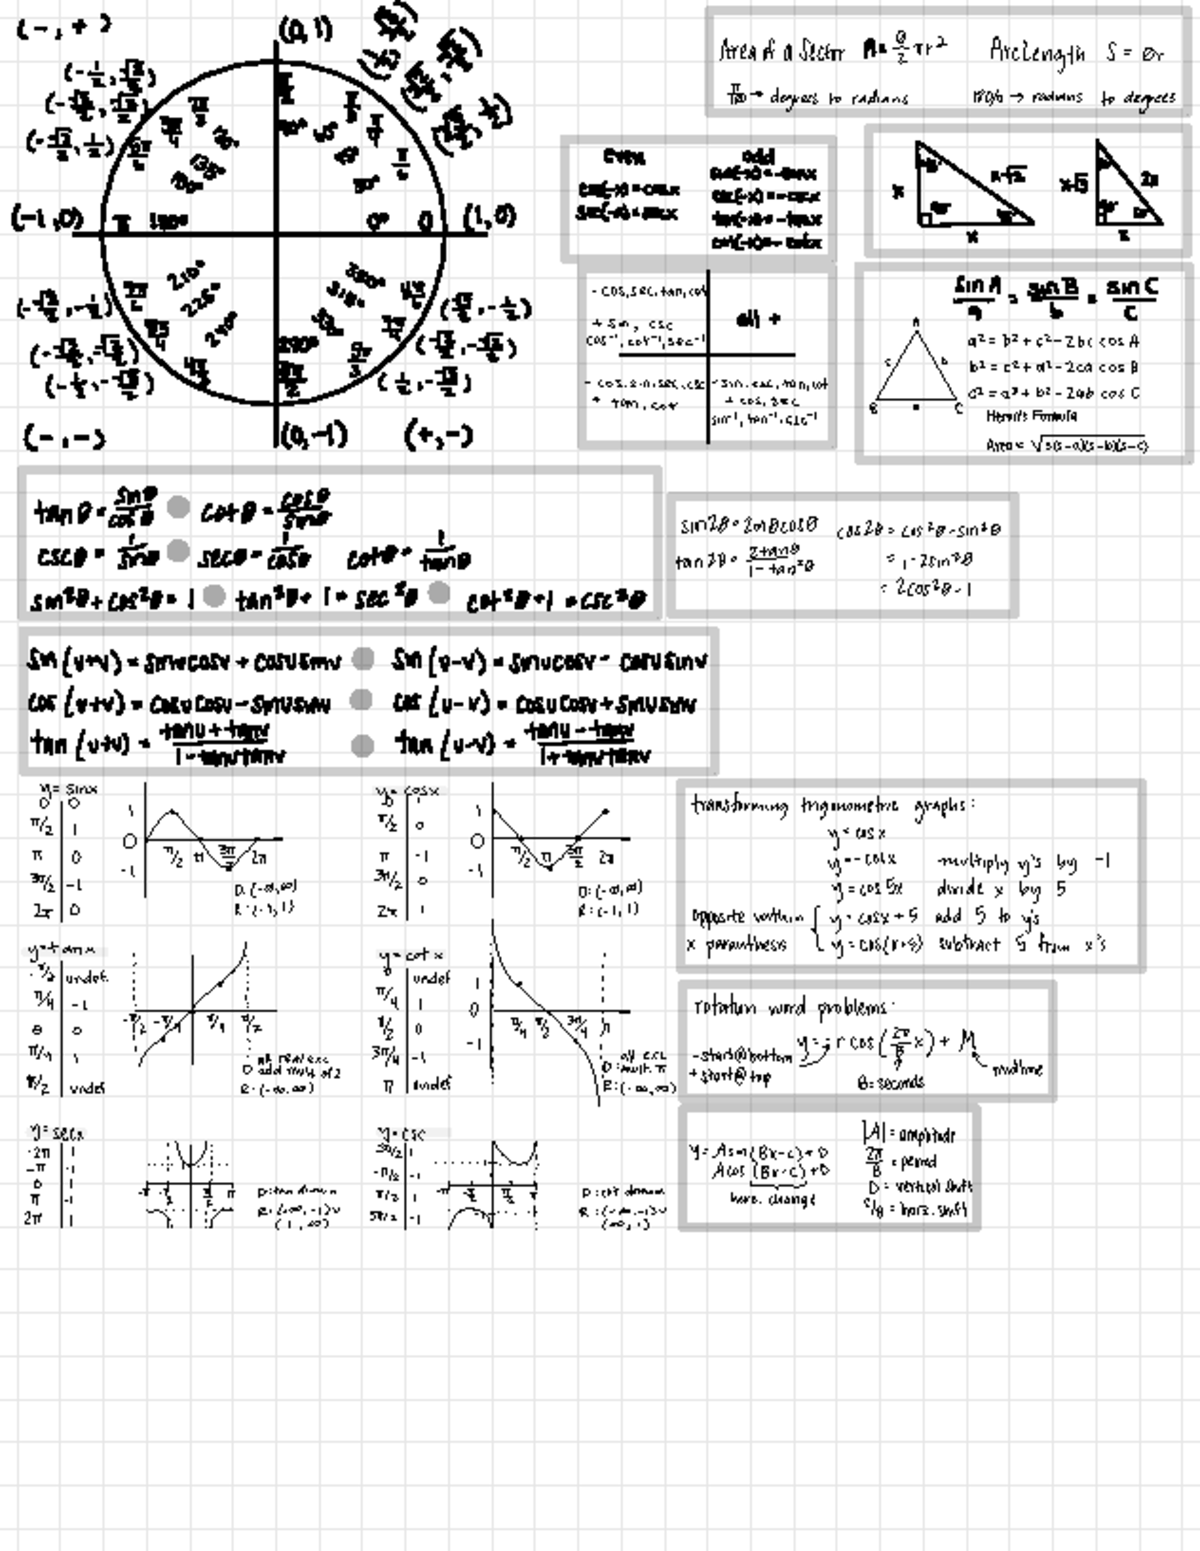 (-,+)
(0,1)
(-1,0)
π
180°
0°
0
(1,0)
90°
210°
225°
240°
330°
315°
270°
(0,-1)
(-,-)
(+,-)
Area of a Sector A = θ/2 πr²
Arc Length S = θr
π/180 → degrees to radians
180/π → radians to degrees
even
cos(-x)=cosx
sec(-x)=secx
odd
sin(-x)=-sinx
csc(-x)=-cscx
tan(-x)=-tanx
cot(-x)=-cotx
x
x√2
x
x√3
2x
x
- cos, sec, tan, cot
+ sin, csc
cos⁻¹, cot⁻¹, sec⁻¹
all +
- cos, sin, sec, csc
+ tan, cot
- sin, csc, tan, cot
+ cos, sec
sin⁻¹, tan⁻¹, csc⁻¹
sin A/a = sin B/b = sin C/c
A
c
b
B
a
C
a² = b² + c² - 2bc cos A
b² = c² + a² - 2ca cos B
c² = a² + b² - 2ab cos C
Heron's Formula
Area = √s(s-a)(s-b)(s-c)
tanθ = sinθ/cosθ
cotθ = cosθ/sinθ
cscθ = 1/sinθ
secθ = 1/cosθ
cotθ = 1/tanθ
sin²θ + cos²θ = 1
tan²θ + 1 = sec²θ
cot²θ + 1 = csc²θ
sin2θ = 2sinθcosθ
cos2θ = cos²θ - sin²θ
tan2θ = 2tanθ/1-tan²θ
= 1-2sin²θ
= 2cos²θ-1
sin(u+v) = sinucosv + cosusinv
sin(u-v) = sinucosv - cosusinv
cos(u+v) = cosucosv - sinusinv
cos(u-v) = cosucosv + sinusinv
tan(u+v) = tanu+tanv/1-tanutanv
tan(u-v) = tanu-tanv/1+tanutanv
y=sinx
0 0
π/2 1
π 0
3π/2 -1
2π 0
1
0
-1
π/2 π 3π/2 2π
D:(-∞,∞)
R:(-1,1)
y=cosx
0 1
π/2 0
π -1
3π/2 0
2π 1
1
0
-1
π/2 π 3π/2 2π
D:(-∞,∞)
R:(-1,1)
transforming trigonometric graphs:
y=cosx
y=-cosx multiply y's by -1
y=cos5x divide x by 5
opposite within
x paranthesis
y=cosx+5 add 5 to y's
y=cos(x+5) subtract 5 from x's
y=tanx
-π/2 undef.
π/4 -1
0 0
π/4 1
π/2 undef
-π/2 -π/4 π/4 π/2
all real exc.
D odd mult. of 2
R:(-∞,∞)
y=cot x
undef
π/4 1
π/2 0
3π/4 -1
π undef
1
0
-1
π/4 π/2 3π/4 π
all exc.
D: mult. π
R:(-∞,∞)
rotation word problems:
y = - r cos(2π/B x) + M
-start@bottom
+start@top
B=seconds
midline
y=secx
-2π 1
-π -1
0 1
π -1
2π 1
D: tan domain
R:(-∞,-1)∪
(1,∞)
y=csc
D: cot domain
R:(-∞,-1)∪
(∞,1)
y=Asin(Bx-c)+D
Acos(Bx-c)+D
horz. change
|A| = amplitude
2π/B = period
D = vertical shift
c/B = horz. shift